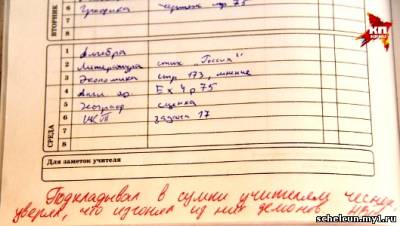 ВТОРНИК
6 чертёж стр. 75
7
8
КП
СРЕДА
1 Алгебра
2 Литература стих „Россия"
3 Экономика стр 173, мнение
4 Англ. яз. Ex 4 p 75
5 сценка
6 задача 17
7
8
Для заметок учителя
Подкладывал в сумки учителям чеснок,
уверял, что изгонял из них демонов
schelcun.my1.ru